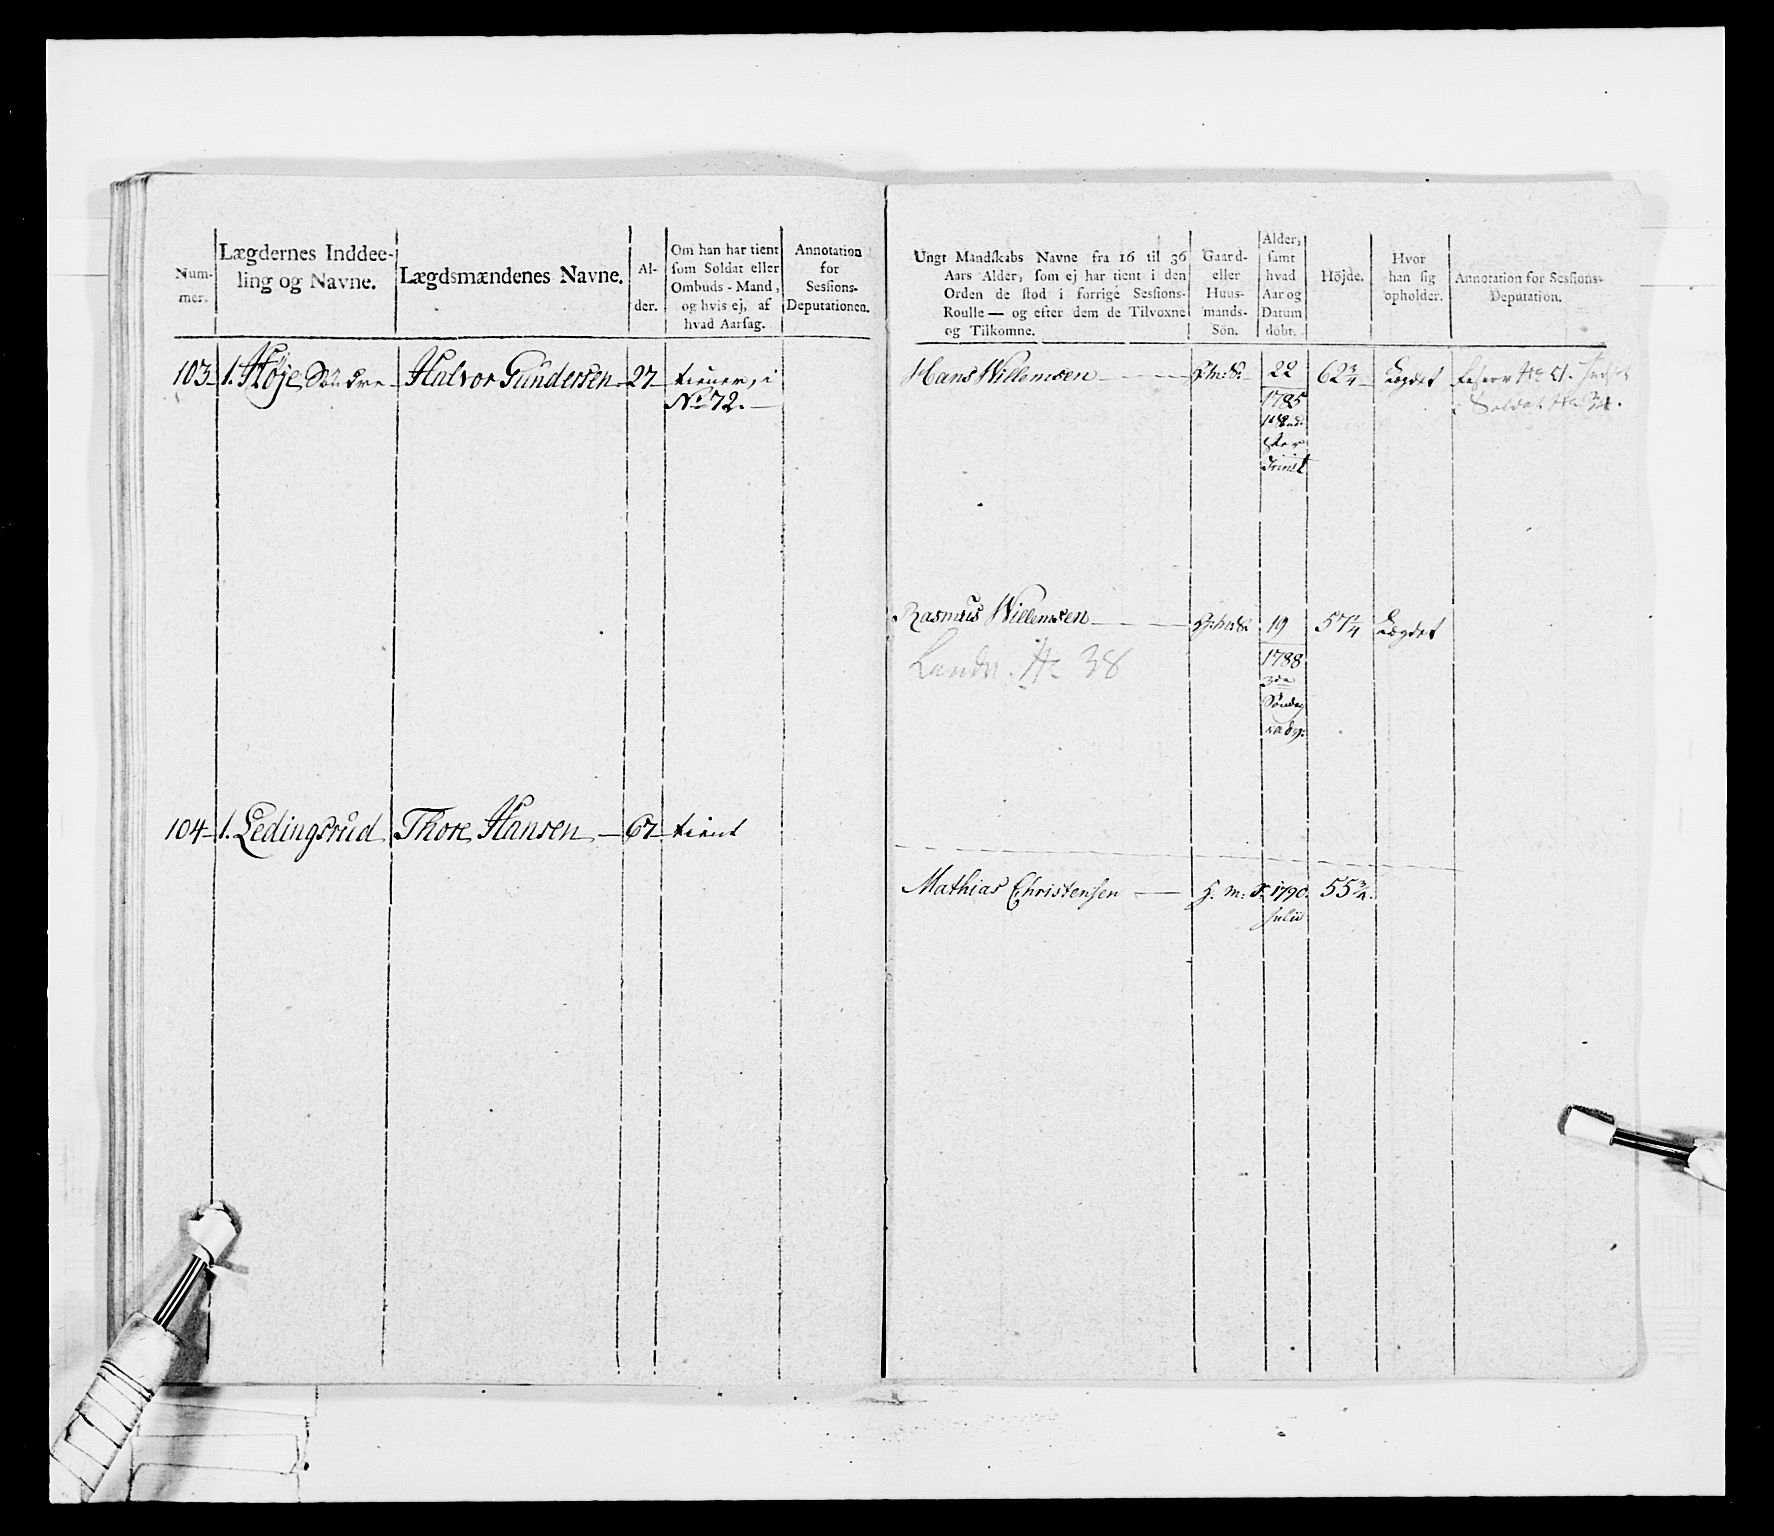 Num-
mer.
Lægdernes Inddee-
ling og Navne.
Lægdsmændenes Navne.
Al-
der.
Om han har tient
som Soldat eller
Ombuds-Mand,
og hvis ej, af
hvad Aarsag.
Annotation
for
Sessions-
Deputationen.
103 1. Høje Søndre Halvor Gundersen 27 tiener i
No 72.
104 1. Ledingsrud Thore Hansen 67 tient
Ungt Mandskabs Navne fra 16 til 36
Aars Alder, som ej har tient i den
Orden de stod i forrige Sessions-
Roulle — og efter dem de Tilvoxne
og Tilkomne.
Gaard-
eller
Huus-
mands-
Sön.
Alder,
samt
hvad
Aar og
Datum
döbt.
Höjde.
Hvor
han sig
opholder.
Annotation for Sessions-
Deputation.
Hans Willemsen 22 62 3/4 Lægdet
1785
Trinit
Soldat
Rasmus Willemsen 19 57 1/4 Lægdet
Landv. No 38
1788
3de
Søndag
Mathias Christensen H. m. S. 1790. 55 3/4.
Julii